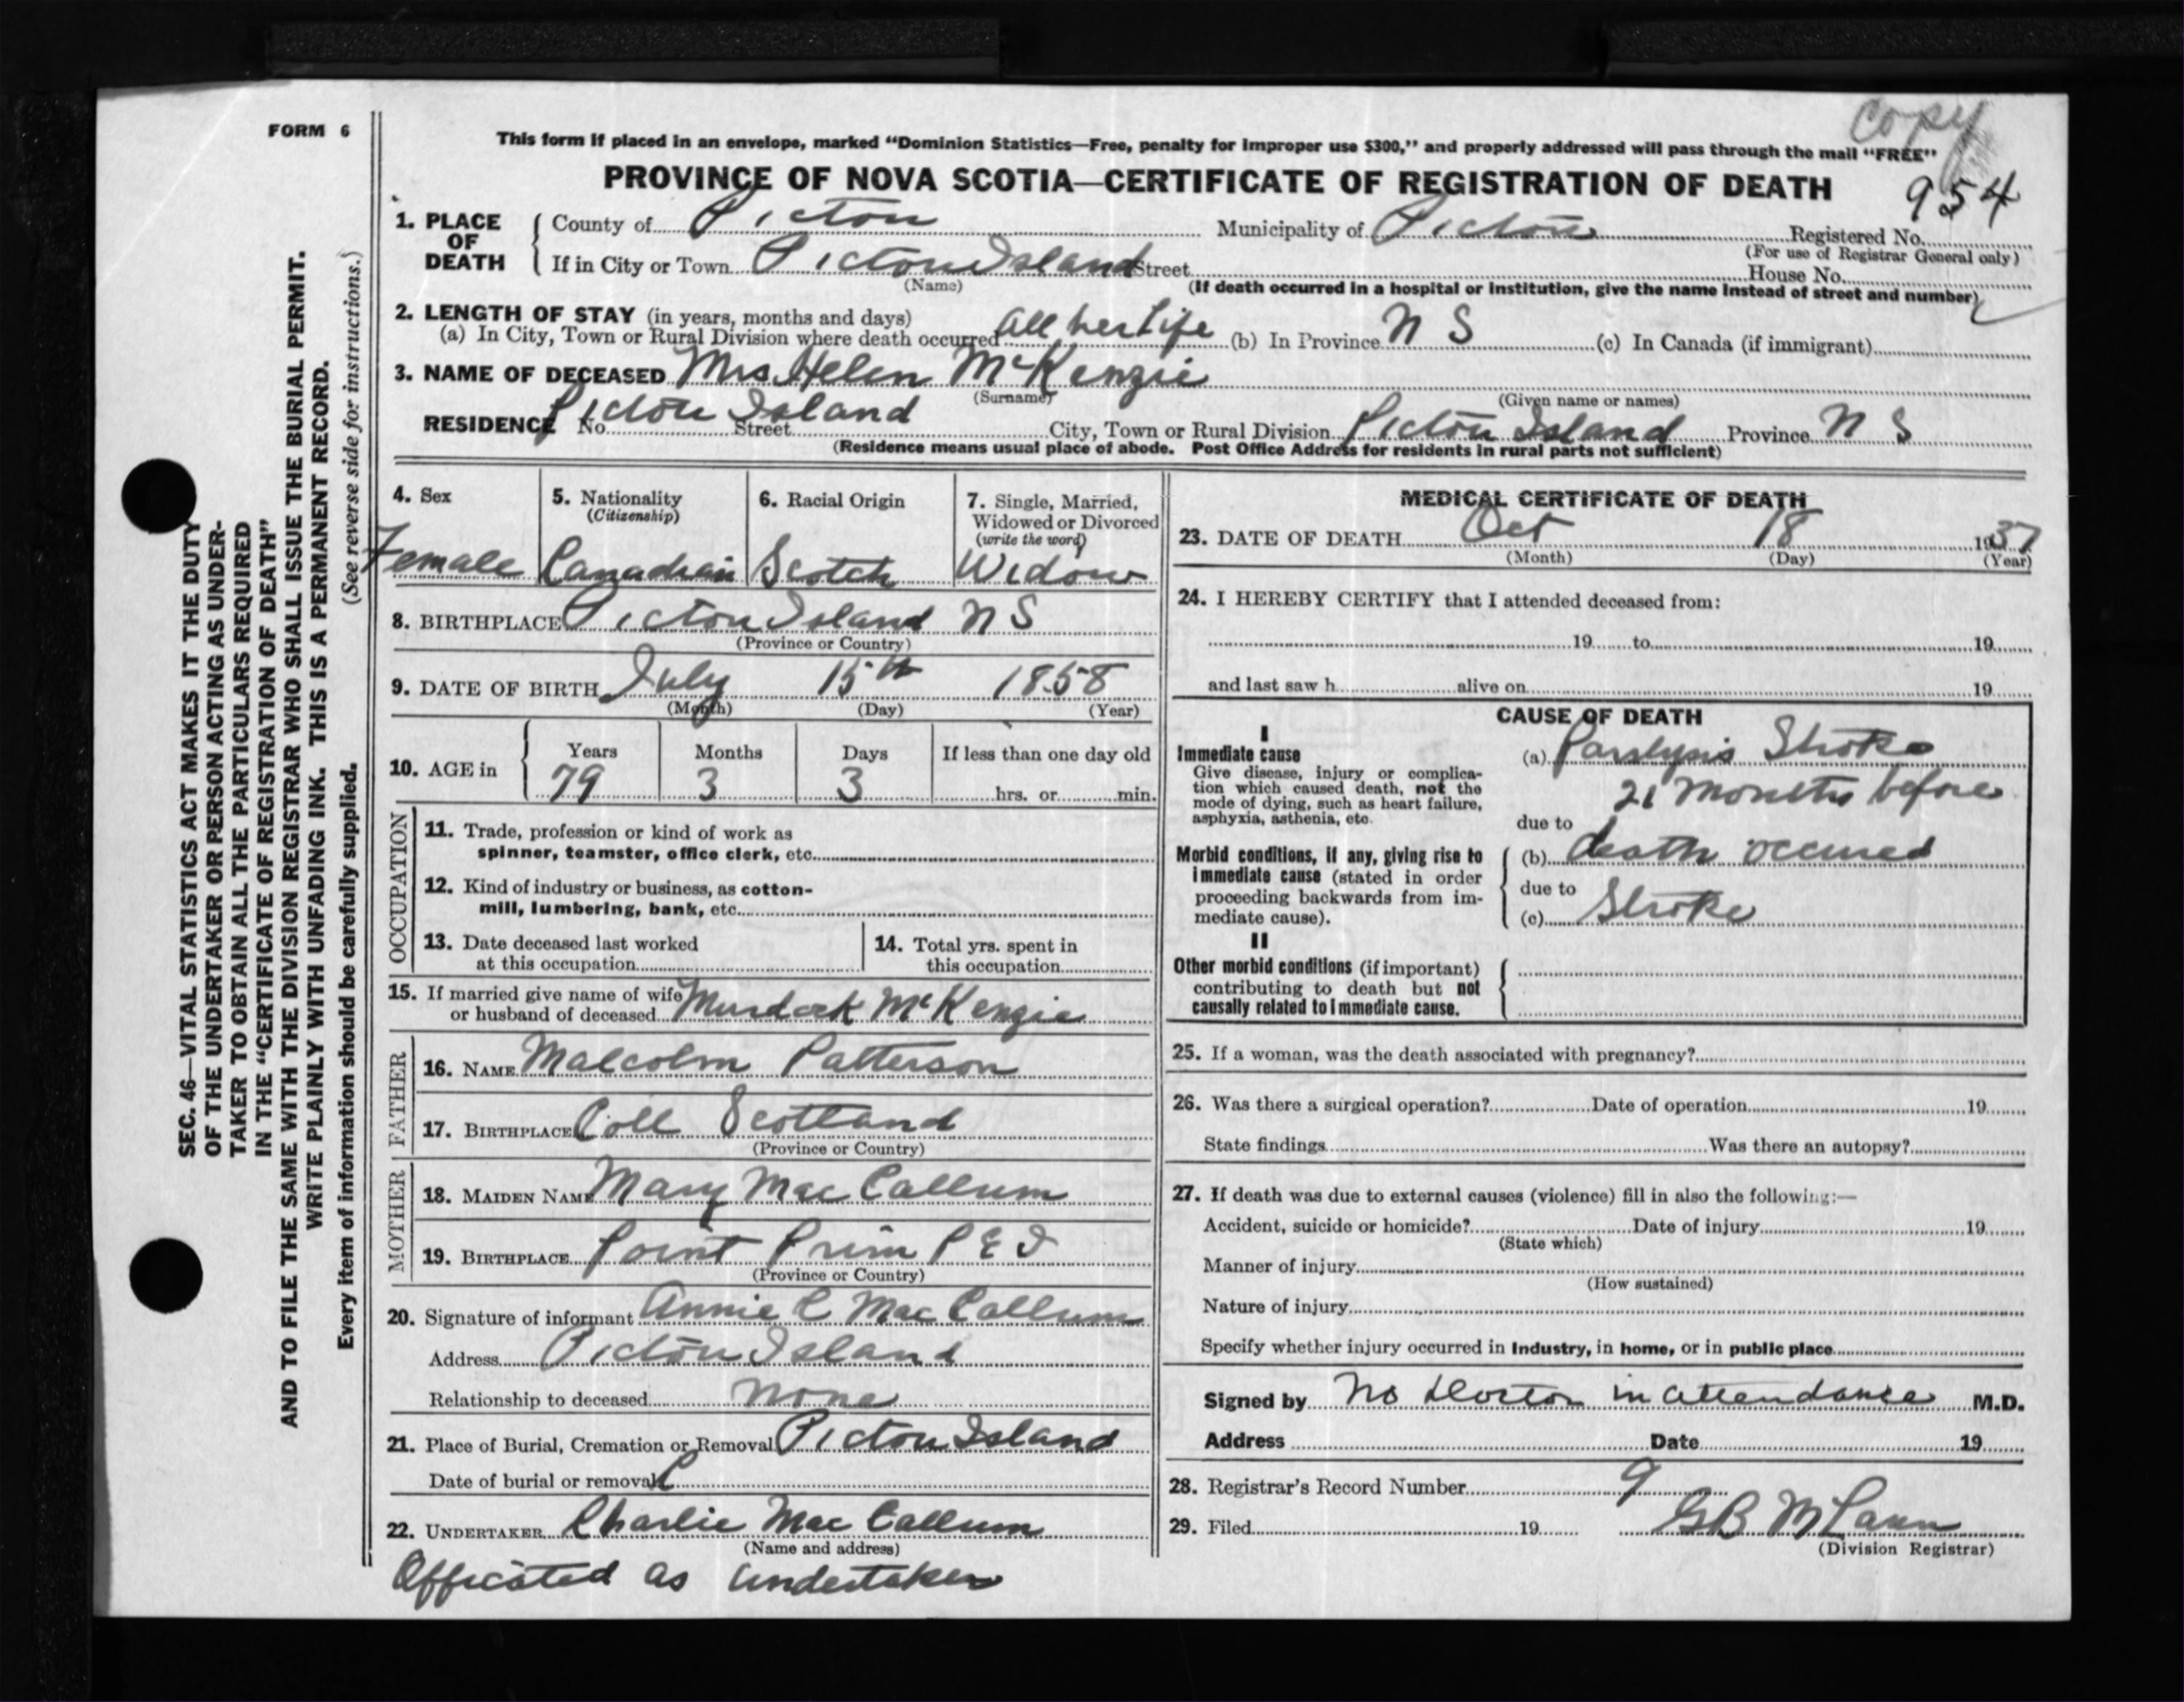 copy
FORM 6
This form if placed in an envelope, marked "Dominion Statistics—Free, penalty for improper use $300," and properly addressed will pass through the mail "FREE"
PROVINCE OF NOVA SCOTIA—CERTIFICATE OF REGISTRATION OF DEATH
954
1. PLACE OF DEATH
County of Pictou Municipality of Pictou Registered No.
(For use of Registrar General only)
If in City or Town Pictou Island Street House No.
(Name) (If death occurred in a hospital or institution, give the name instead of street and number)
2. LENGTH OF STAY (in years, months and days)
(a) In City, Town or Rural Division where death occurred all her Life (b) In Province N S (c) In Canada (if immigrant)
3. NAME OF DECEASED Mrs Helen McKenzie
(Surname) (Given name or names)
RESIDENCE Pictou Island No. Street City, Town or Rural Division Pictou Island Province N S
(Residence means usual place of abode. Post Office Address for residents in rural parts not sufficient)
4. Sex
Female
5. Nationality
(Citizenship)
Canadian
6. Racial Origin
Scotch
7. Single, Married,
Widowed or Divorced
(write the word)
Widow
8. BIRTHPLACE Pictou Island N S
(Province or Country)
9. DATE OF BIRTH July 15th 1858
(Month) (Day) (Year)
10. AGE in
Years Months Days If less than one day old
79 3 3 hrs. or min.
OCCUPATION
11. Trade, profession or kind of work as
spinner, teamster, office clerk, etc.
12. Kind of industry or business, as cotton-
mill, lumbering, bank, etc.
13. Date deceased last worked
at this occupation
14. Total yrs. spent in
this occupation
15. If married give name of wife
or husband of deceased Murdock McKenzie
FATHER
16. NAME Malcolm Patterson
17. BIRTHPLACE Coll Scotland
(Province or Country)
MOTHER
18. MAIDEN NAME Mary Mac Callum
19. BIRTHPLACE Point Prim P E I
(Province or Country)
20. Signature of informant Annie C Mac Callum
Address Pictou Island
Relationship to deceased none
21. Place of Burial, Cremation or Removal Pictou Island
Date of burial or removal
22. UNDERTAKER Charlie Mac Callum
(Name and address)
Officated as undertaker
MEDICAL CERTIFICATE OF DEATH
23. DATE OF DEATH Oct 18 1937
(Month) (Day) (Year)
24. I HEREBY CERTIFY that I attended deceased from:
19 to 19
and last saw h alive on 19
CAUSE OF DEATH
I
Immediate cause
Give disease, injury or complica-
tion which caused death, not the
mode of dying, such as heart failure,
asphyxia, asthenia, etc.
(a) Paralysis Stroke
21 months before
due to
Morbid conditions, if any, giving rise to
immediate cause (stated in order
proceeding backwards from im-
mediate cause).
(b) death occured
due to
(c) Stroke
II
Other morbid conditions (if important)
contributing to death but not
causally related to immediate cause.
25. If a woman, was the death associated with pregnancy?
26. Was there a surgical operation? Date of operation 19
State findings Was there an autopsy?
27. If death was due to external causes (violence) fill in also the following:—
Accident, suicide or homicide? Date of injury 19
(State which)
Manner of injury
(How sustained)
Nature of injury
Specify whether injury occurred in industry, in home, or in public place
Signed by No Doctor in attendance M.D.
Address Date 19
28. Registrar's Record Number 9
29. Filed 19 G B McLann
(Division Registrar)
SEC. 46—VITAL STATISTICS ACT MAKES IT THE DUTY
OF THE UNDERTAKER OR PERSON ACTING AS UNDER-
TAKER TO OBTAIN ALL THE PARTICULARS REQUIRED
IN THE "CERTIFICATE OF REGISTRATION OF DEATH"
AND TO FILE THE SAME WITH THE DIVISION REGISTRAR WHO SHALL ISSUE THE BURIAL PERMIT.
WRITE PLAINLY WITH UNFADING INK. THIS IS A PERMANENT RECORD.
Every item of information should be carefully supplied. (See reverse side for instructions.)